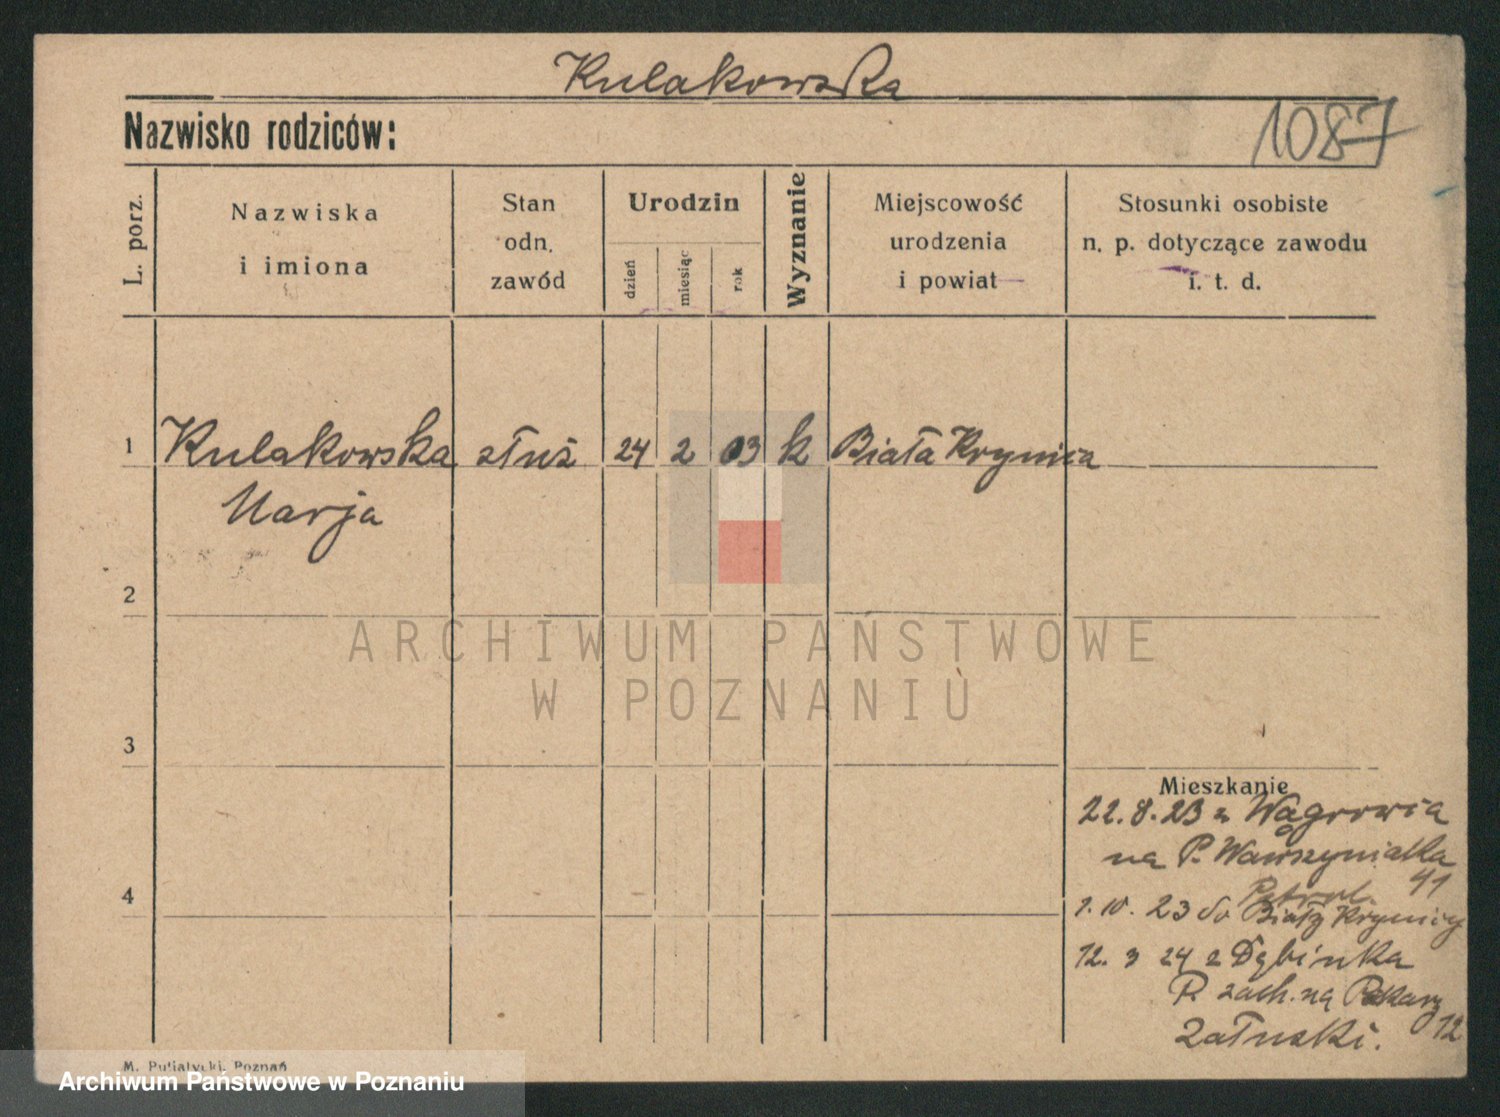 Kulakowska
Nazwisko rodziców:
1087
L. porz.
Nazwiska
i imiona
Stan
odn.
zawód
Urodzin
dzień
miesiąc
rok
Wyznanie
Miejscowość
urodzenia
i powiat
Stosunki osobiste
n. p. dotyczące zawodu
i. t. d.
1 Kulakowska służ 24 2 03 k Biała Krynica
Marja
2
ARCHIWUM PAŃSTWOWE
W POZNANIU
3
Mieszkanie
22.8.23 z Wągrowca
na P. Wawrzyniaka
41
4
1.10.23 do Białej Krynicy
12.3 24 z Dębinka
P. zach. na Piekary
12
Załuski.
M. Putiatycki, Poznań
Archiwum Państwowe w Poznaniu